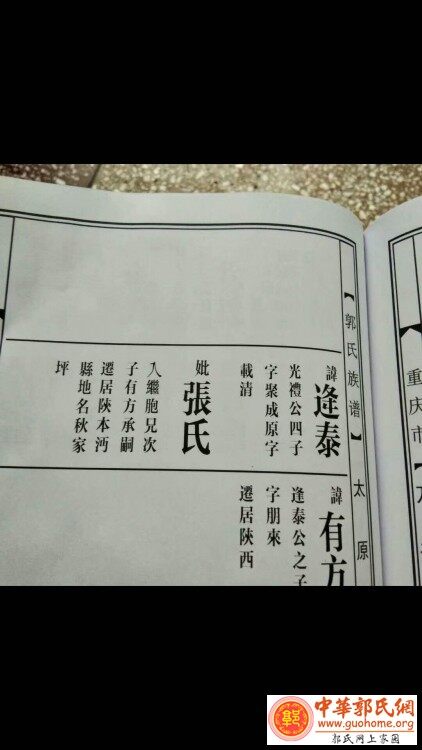 重庆市
【郭氏族谱】太原
諱逢泰
光禮公四子
字聚成原字
載清
妣張氏
入繼胞兄次
子有方承嗣
遷居陝本沔
縣地名秋家
坪
諱有方
逢泰公之子
字朋來
遷居陝西
中華郭氏網
www.guohome.org
郭氏网上家園